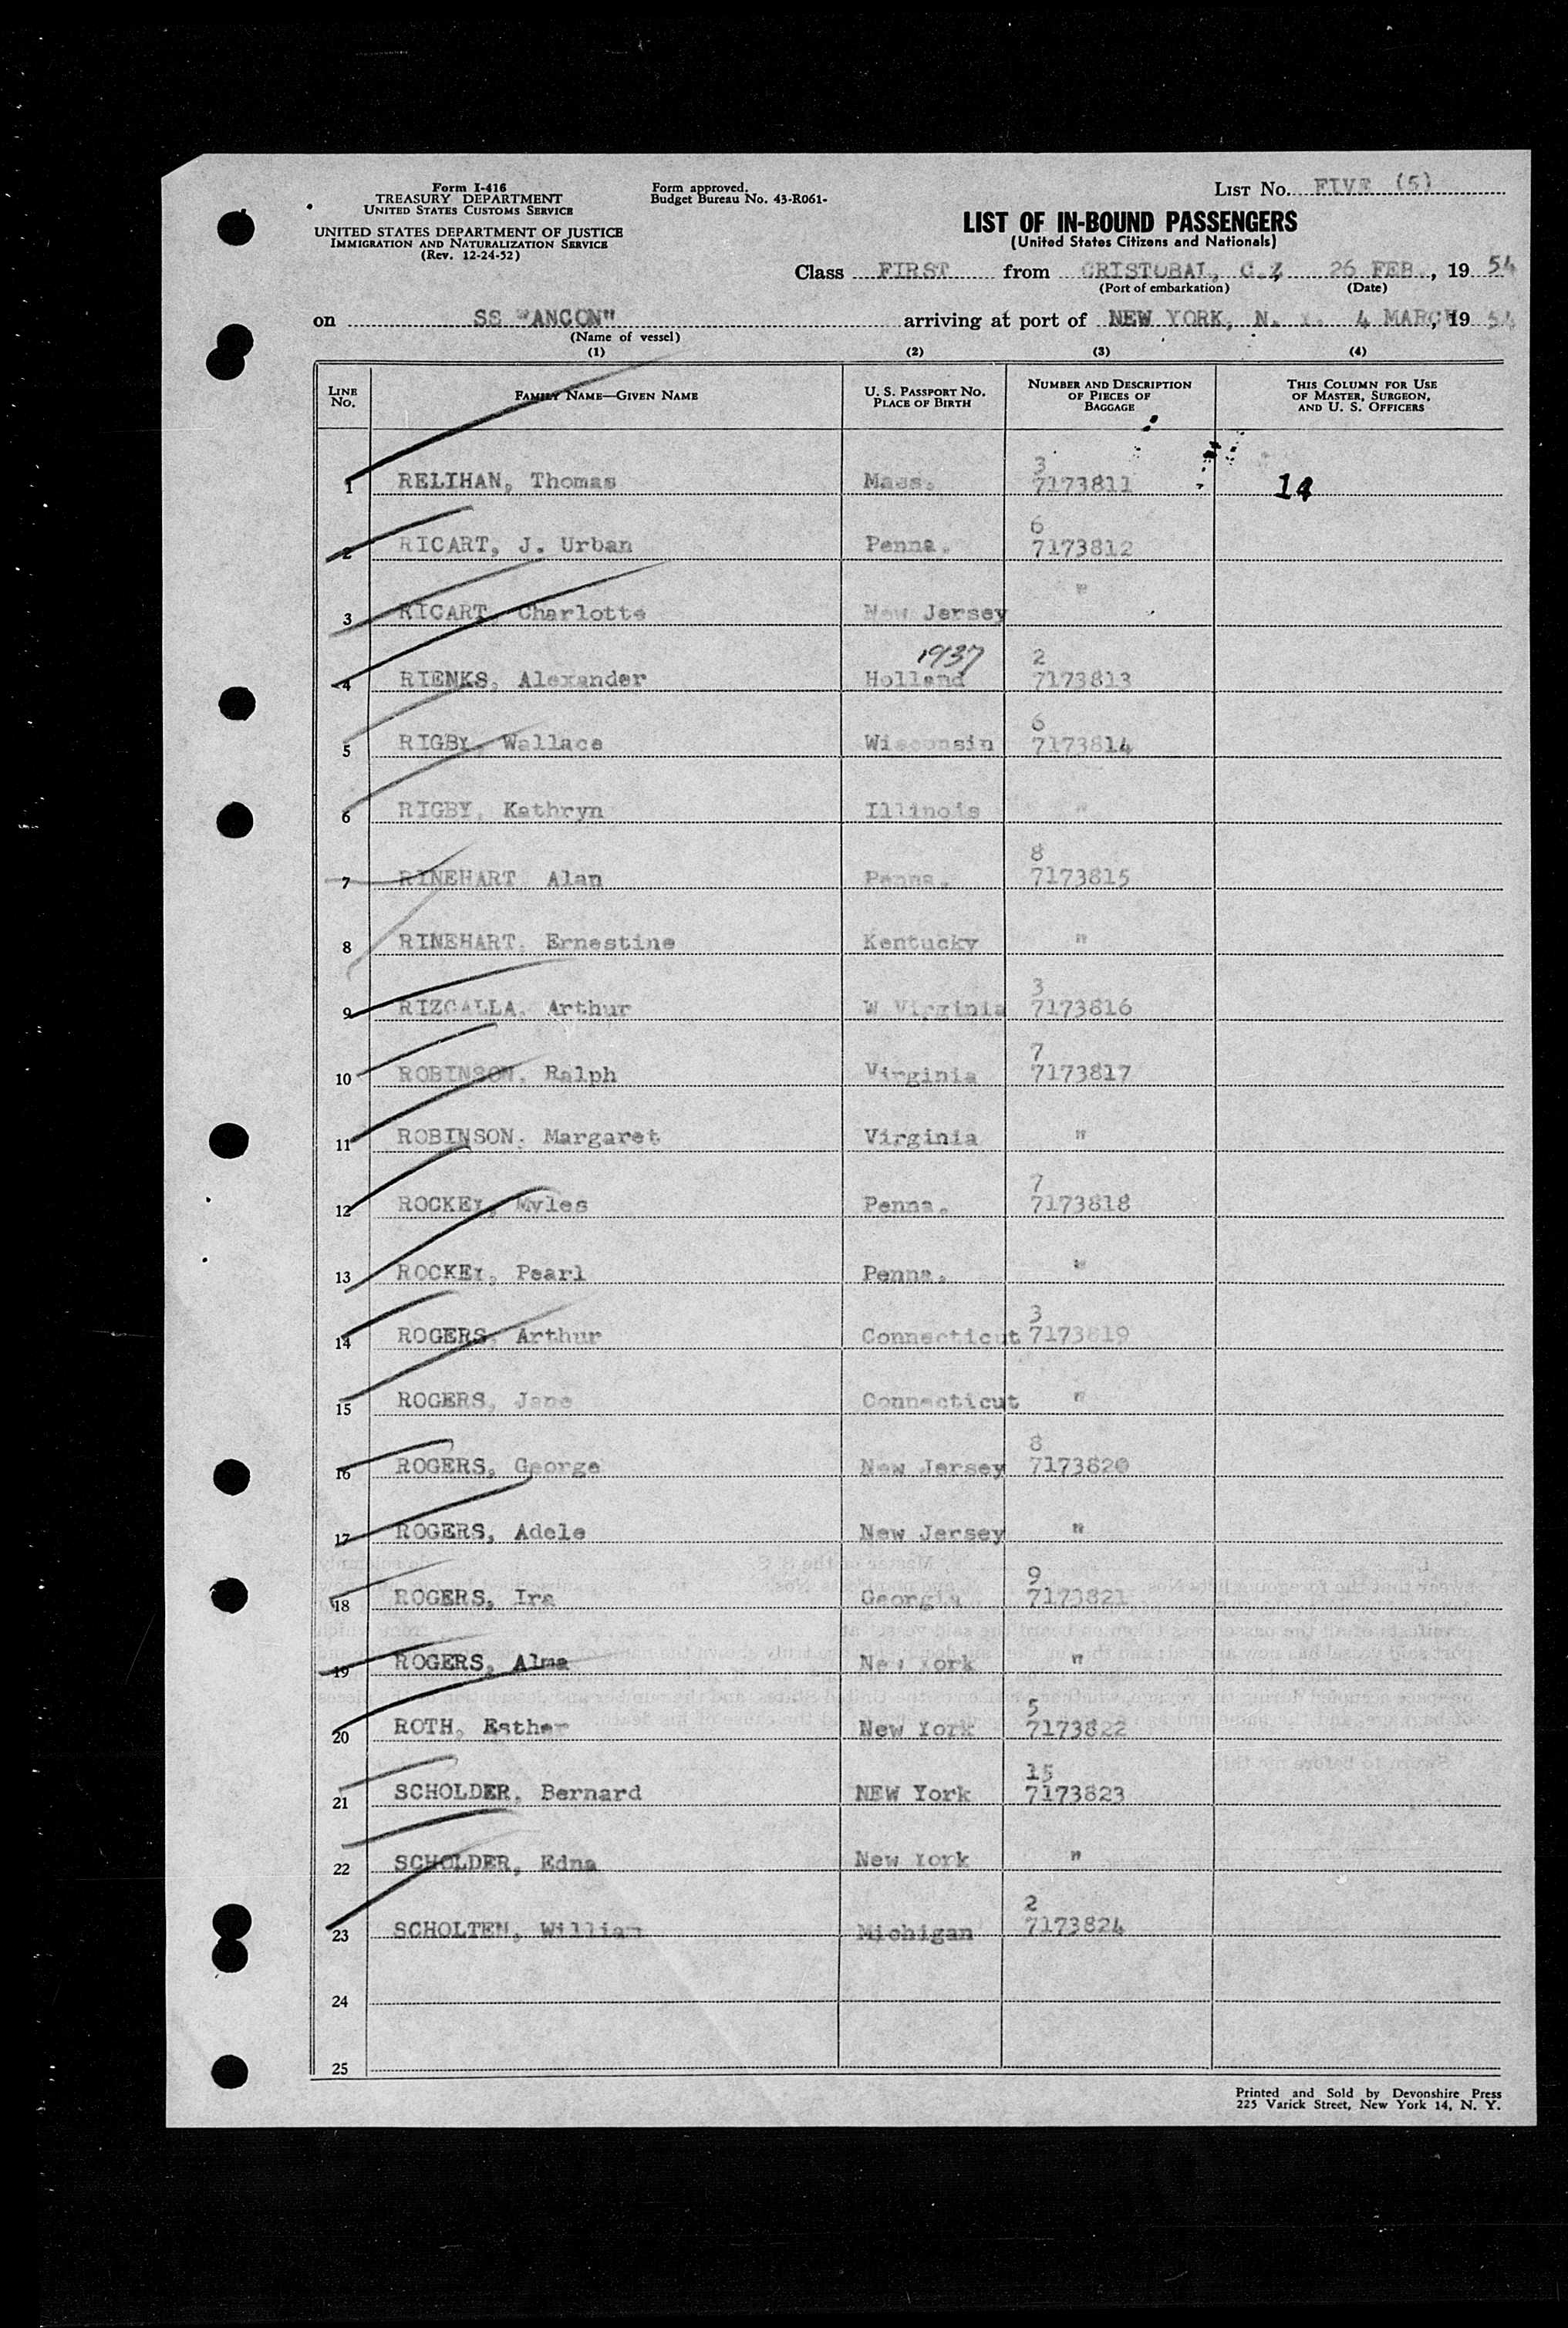 Form I-416
TREASURY DEPARTMENT
UNITED STATES CUSTOMS SERVICE
UNITED STATES DEPARTMENT OF JUSTICE
IMMIGRATION AND NATURALIZATION SERVICE
(Rev. 12-24-52)
Form approved.
Budget Bureau No. 43-R061-
LIST No. FIVE (5)
LIST OF IN-BOUND PASSENGERS
(United States Citizens and Nationals)
Class FIRST from CRISTOBAL, C.Z, 26 FEB., 1954
(Port of embarkation) (Date)
on SS "ANCON" arriving at port of NEW YORK, N. Y. 4 MARCH, 1954
(Name of vessel)
(1) (2) (3) (4)
LINE No. FAMILY NAME—GIVEN NAME U. S. PASSPORT No. PLACE OF BIRTH NUMBER AND DESCRIPTION OF PIECES OF BAGGAGE THIS COLUMN FOR USE OF MASTER, SURGEON, AND U. S. OFFICERS
3
1 RELIHAN, Thomas Mass. 7173811 14
6
2 RICART, J. Urban Penna. 7173812
3 RICART, Charlotte New Jersey "
1937 2
4 RIENKS, Alexander Holland 7173813
6
5 RIGBY, Wallace Wisconsin 7173814
6 RIGBY, Kathryn Illinois "
8
7 RINEHART Alan Penna. 7173815
8 RINEHART, Ernestine Kentucky "
3
9 RIZCALLA, Arthur W.Virginia 7173816
7
10 ROBINSON, Ralph Virginia 7173817
11 ROBINSON, Margaret Virginia "
7
12 ROCKEY, Myles Penna. 7173818
13 ROCKEY, Pearl Penna. "
3
14 ROGERS, Arthur Connecticut 7173819
15 ROGERS, Jane Connecticut "
8
16 ROGERS, George New Jersey 7173820
17 ROGERS, Adele New Jersey "
9
18 ROGERS, Ira Georgia 7173821
19 ROGERS, Alma New York "
5
20 ROTH, Esther New York 7173822
15
21 SCHOLDER, Bernard NEW York 7173823
22 SCHOLDER, Edna New York "
2
23 SCHOLTEN, William Michigan 7173824
24
25
Printed and Sold by Devonshire Press
225 Varick Street, New York 14, N. Y.